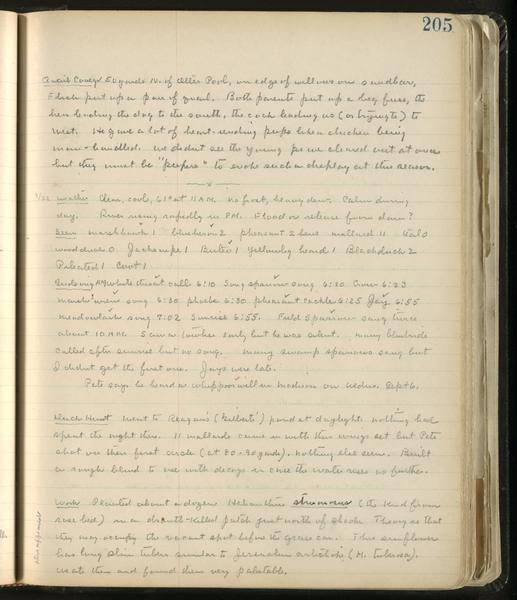 205
Quail Covey 50 yards N. of Otter Pool, on edge of willows on sandbar,
Flick put up a pair of quail. Both parents put up a big fuss, the
hen leading the dog to the south, the cock leading us (or trying to)
west. He gave a lot of heart-rending peeps like a chicken being
man-handled. We did not see the young as we cleared out at once
but they must be "peepers" to evoke such a display at this season.
Weather Clear, cool, 61° at 11 AM. no frost, heavy dew. Calm during
day. River rising rapidly in PM. Flood or release from dam?
Seen marsh hawk 1 blue heron 2 pheasant 2 hens mallard 11
woodduck 0 Jacksnipe 1 Buteo 1 Yellowleg heard 1 Blackduck 2
Pileated 1 Coot 1
Birdsong AM White throat call 6:10 Song sparrow song 6:20 Crow 6:23
marsh wren song 6:30 phoebe 6:30 pheasant cackle 6:25 Jay 6:55
meadowlark song 7:02 Sunrise 6:55. Field Sparrow song twice
about 10 AM. Saw a early but he was silent. many bluebirds
called after sunrise but no song. many swamp sparrows sang but
I did not get the first one. Jays were late.
Pete says he heard a whippoorwill in Madison on Wednes. Sept 6.
Duck Hunt Went to Reagan's (Gilbert's) pond at daylight. nothing had
spent the night there. 11 mallards came in with their wings set but Pete
shot on their first circle (at 80-90 yards). nothing else seen. Built
a rough blind to use with decoys in case the water rises no further.
Work Planted about a dozen Helianthus strumosus (the kind from
rose bed) in a drouth-killed patch just north of shack. Theory is that
they may occupy the vacant spot before the grass can. This sunflower
has long slim tubers similar to Jerusalem artichoke (H. tuberosa).
We ate them and found them very palatable.